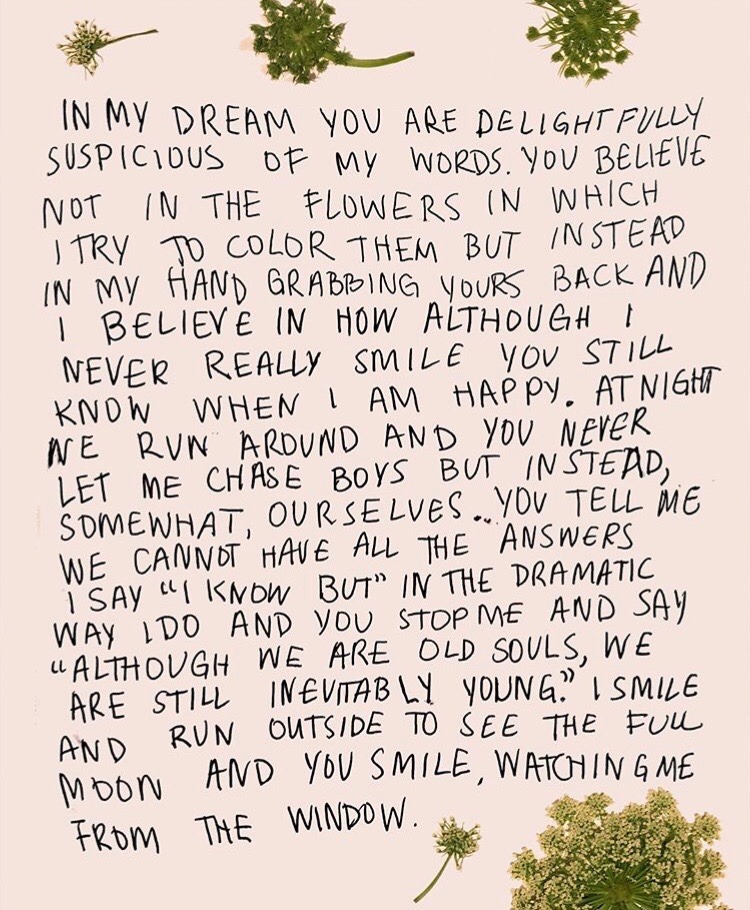 IN MY DREAM YOU ARE DELIGHTFULLY
SUSPICIOUS OF MY WORDS. YOU BELIEVE
NOT IN THE FLOWERS IN WHICH
I TRY TO COLOR THEM BUT INSTEAD
IN MY HAND GRABBING YOURS BACK AND
I BELIEVE IN HOW ALTHOUGH I
NEVER REALLY SMILE YOU STILL
KNOW WHEN I AM HAPPY. AT NIGHT
WE RUN AROUND AND YOU NEVER
LET ME CHASE BOYS BUT INSTEAD,
SOMEWHAT, OURSELVES... YOU TELL ME
WE CANNOT HAVE ALL THE ANSWERS
I SAY "I KNOW BUT" IN THE DRAMATIC
WAY I DO AND YOU STOP ME AND SAY
"ALTHOUGH WE ARE OLD SOULS, WE
ARE STILL INEVITABLY YOUNG." I SMILE
AND RUN OUTSIDE TO SEE THE FULL
MOON AND YOU SMILE, WATCHING ME
FROM THE WINDOW.